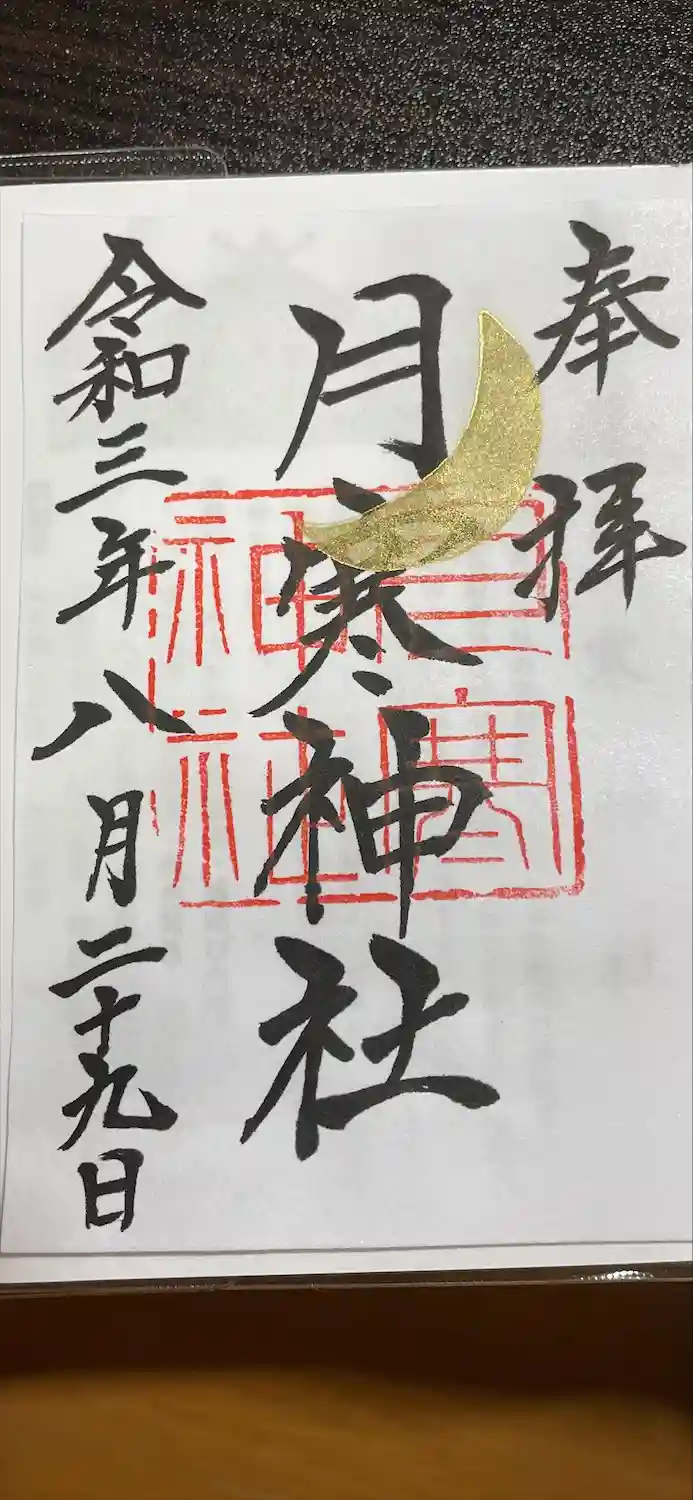 奉拝
月寒神社
月寒
神社
令和三年八月二十九日